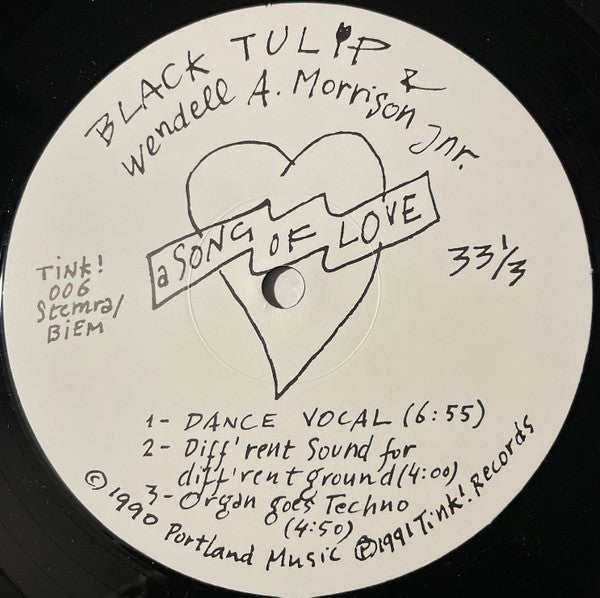 BLACK TULIP &
Wendell A. Morrison Jnr.
a SONG OF LOVE
Tink!
006
Stemra/
BIEM
33 1/3
1- DANCE VOCAL (6:55)
2- Diff'rent Sound for
diff'rent ground (4:00)
3- Organ goes Techno
(4:50)
© 1990 Portland Music ℗ 1991 Tink! Records